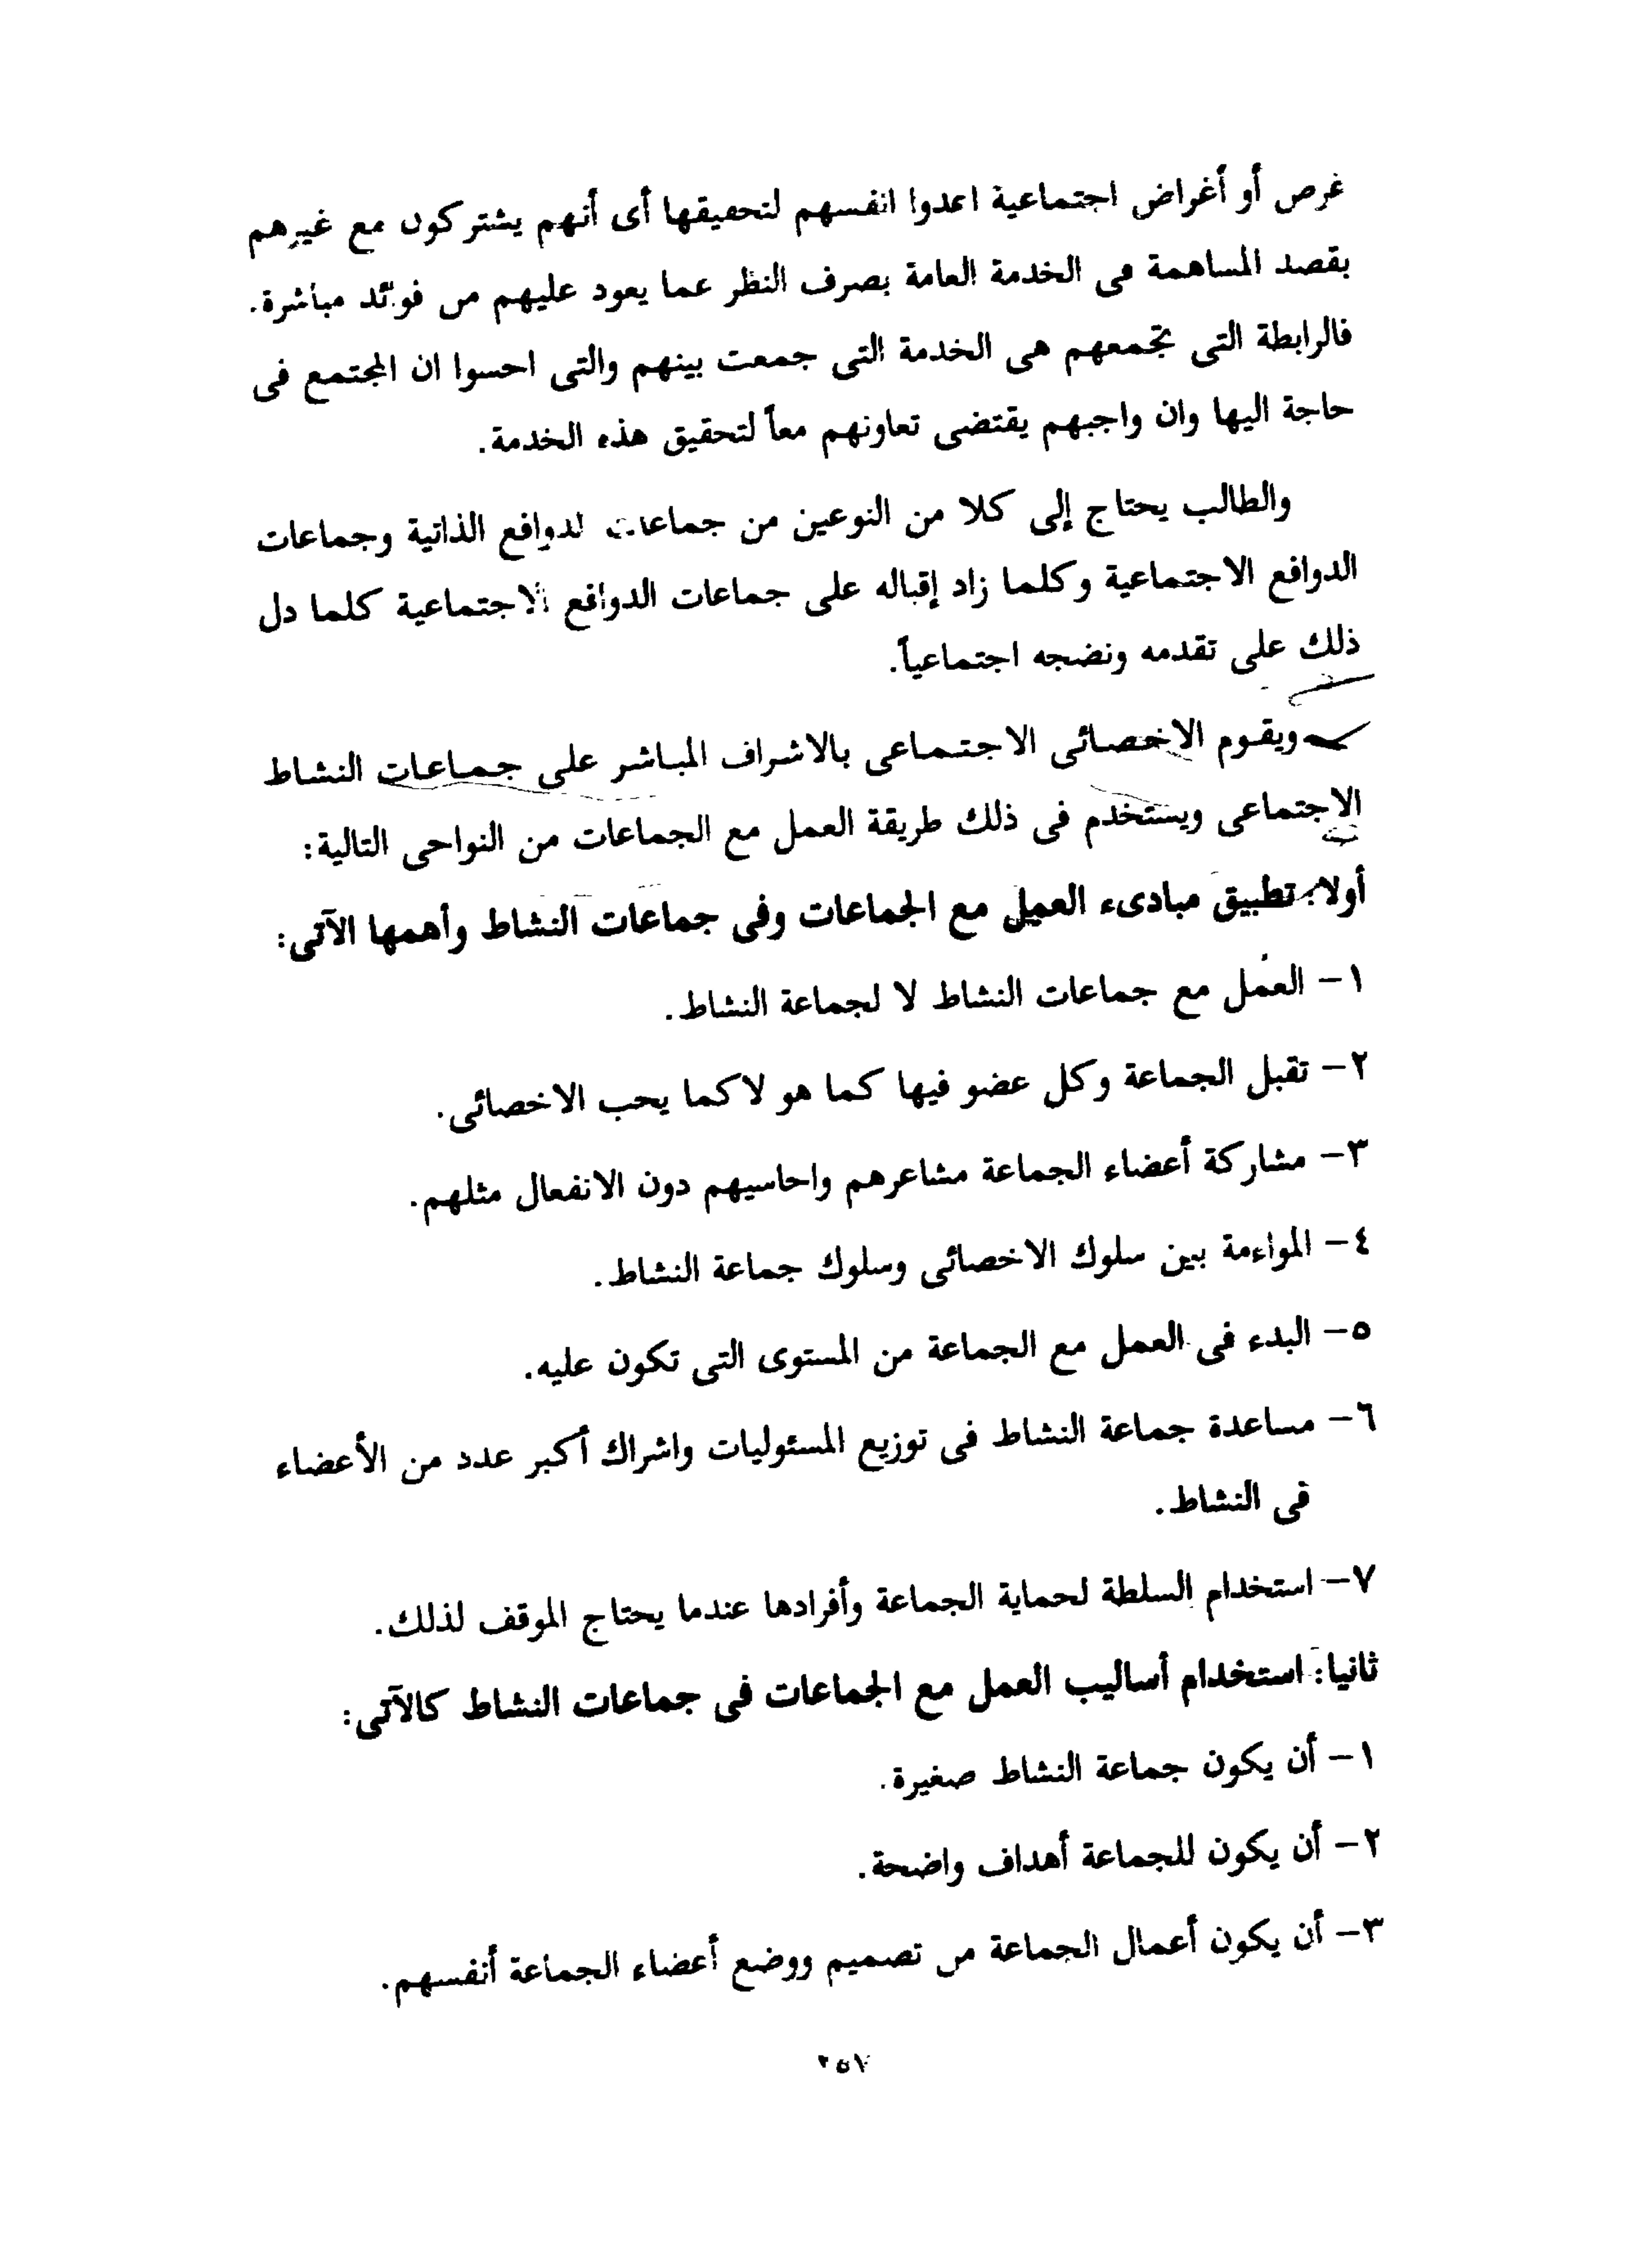 غرض أو أغراض اجتماعية اعدوا انفسهم لتحقيقها أى أنهم يشتركون مع غيرهم
بقصد المساهمة فى الخدمة العامة بصرف النظر عما يعود عليهم من فوائد مباشرة.
فالرابطة التى تجمعهم هى الخدمة التى جمعت بينهم والتى احسوا ان المجتمع فى
حاجة اليها وان واجبهم يقتضى تعاونهم معاً لتحقيق هذه الخدمة.
والطالب يحتاج إلى كلا من النوعين من جماعات الدوافع الذاتية وجماعات
الدوافع الاجتماعية وكلما زاد إقباله على جماعات الدوافع الاجتماعية كلما دل
ذلك على تقدمه ونضجه اجتماعياً.
ويقوم الاخصائى الاجتماعى بالاشراف المباشر على جماعات النشاط
الاجتماعى ويستخدم فى ذلك طريقة العمل مع الجماعات من النواحى التالية:
أولا: تطبيق مبادىء العمل مع الجماعات وفى جماعات النشاط وأهمها الآتى:
١- العمل مع جماعات النشاط لا لجماعة النشاط.
٢- تقبل الجماعة وكل عضو فيها كما هو لاكما يحب الاخصائى.
٣- مشاركة أعضاء الجماعة مشاعرهم واحاسيهم دون الانفعال مثلهم.
٤- المواءمة بين سلوك الاخصائى وسلوك جماعة النشاط.
٥- البدء فى العمل مع الجماعة من المستوى التى تكون عليه.
٦- مساعدة جماعة النشاط فى توزيع المسئوليات واشراك أكبر عدد من الأعضاء
فى النشاط.
٧- استخدام السلطة لحماية الجماعة وأفرادها عندما يحتاج الموقف لذلك.
ثانيا: استخدام أساليب العمل مع الجماعات فى جماعات النشاط كالآتى:
١- أن يكون جماعة النشاط صغيرة.
٢- أن يكون للجماعة أهداف واضحة.
٣- أن يكون أعمال الجماعة من تصميم ووضع أعضاء الجماعة أنفسهم.
٢٥٧